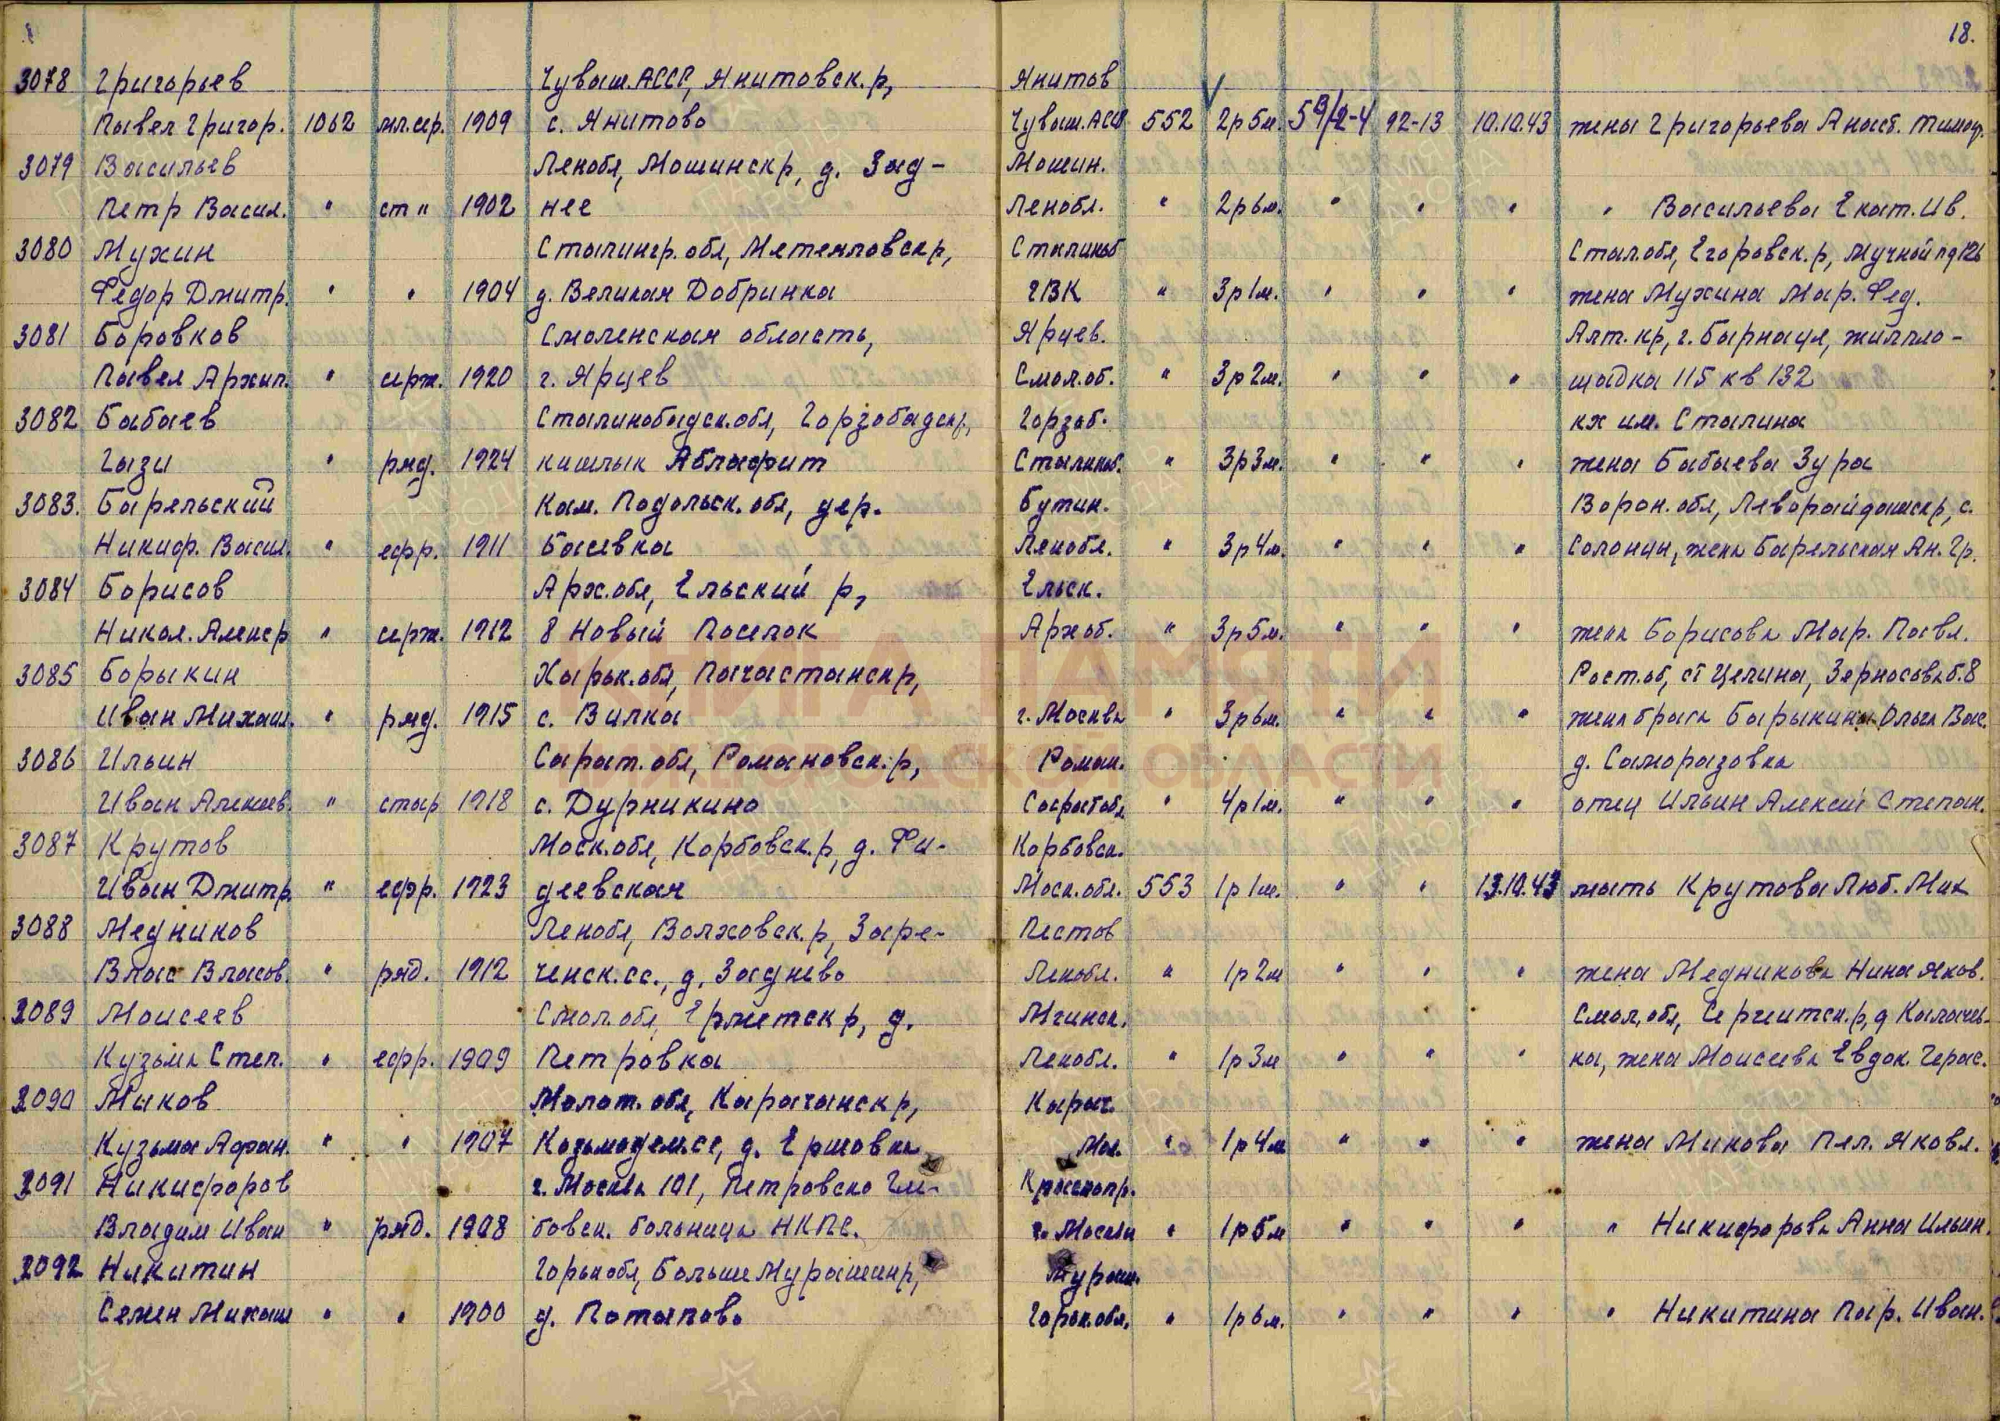 18.
3078 Григорьев Чуваш.АССР, Янитовск.р, Янитов
Павел Григор. 1062 мл.сер. 1909 с. Янитово Чуваш.АССР 552 2р5м. 92-13 10.10.43 жена Григорьева Анаст. Тимоф.
3079 Васильев Ленобл, Мошинск р, д. Зад- Мошин.
Петр Васил. " ст " 1902 нее Ленобл. " 2р6м. " " " " Васильева Екат. Ив.
3080 Мухин Сталингр. обл, Сталиноб Стал.обл, Егоровск.р, Мучной
Федор Дмитр. " " 1904 д. Великая Добринка ГВК " 3р1м. " " " жена Мухина Мар. Фед.
3081 Боровков Смоленская область, Ярцев. Алт. кр, г. Барнаул, жилпло-
Павел Архип. " серж. 1920 г. Ярцев Смол.об. " 3р2м. " " " щадка 115 кв 132
3082 Бабаев Сталинабадск.обл, Горзобадск р, Горзоб. кх им. Сталина
Гази " ряд. 1924 кишлык Аблафит Сталиноб. " 3р3м. " " " жена Бабаева Зура
3083. Барельский Кам. Подольск. обл, дер. Бутин. Ворон. обл, с.
Никиф. Васил. " ефр. 1911 Басевка Ленобл. " 3р4м. " " " жена Барельская Ан. Гр.
3084 Борисов Арх.обл, Ельский р, Ельск.
Никол. Алекср " серж. 1912 8 Новый Поселок Архоб. " 3р5м. " " " жена Борисова Мар. Павл.
3085 Борыкин Харьк.обл, Пачастанск р, Рост.об, ст Целина, Зерносовх.б.8
Иван Михаил. " ряд. 1915 с. Вилка г. Москва " 3р6м. " " " жена брата Барыкина Ольга Вас.
3086 Ильин Сарат. обл, Романовск. р, Роман. д. Саморазовка
Иван Алексеев. " стар 1918 с. Дурникино Саратобл. " 4р1м. " " " отец Ильин Алексей Степан.
3087 Крутов Моск.обл, Корбовск.р, д. Фа- Корбовск.
Иван Дмитр. " ефр. 1923 деевская Моск.обл. 553 1р1м. " " 13.10.43 мать Крутова Люб. Мих
3088 Медников Ленобл, Волховск.р, Заре- Пестов
Влас Власов. " ряд. 1912 ченск.сс., д. Заднево Ленобл. " 1р2м " " " жена Медникова Нина Яков.
3089 Моисеев Смол.обл, д. Мгинск. Смол.обл,
Кузьма Степ. " ефр. 1909 Петровка Ленобл. " 1р3м " " " ка, жена Моисеева Евдок. Герас.
3090 Маков Молот. обл, Карачанск р, Карач.
Кузьма Афан. " " 1907 Козьмодем.сс, д. Ершовка Мол. " 1р4м " " " жена Макова Пел. Яковл.
3091 Никифоров г. Москва 101, Петровско Гли- Краснопр.
Владим Иван " ряд. 1908 бовск. больница НКПС. г. Москва " 1р5м " " " " Никифорова Анна Ильин.
3092 Никитин Горьк.обл, БольшеМурашкин р, Мураш.
Семен Михаил " " 1900 д. Потапово Горьк.обл. " 1р6м. " " " " Никитина Пар. Иван.
КНИГА ПАМЯТИ
ОБЛАСТИ